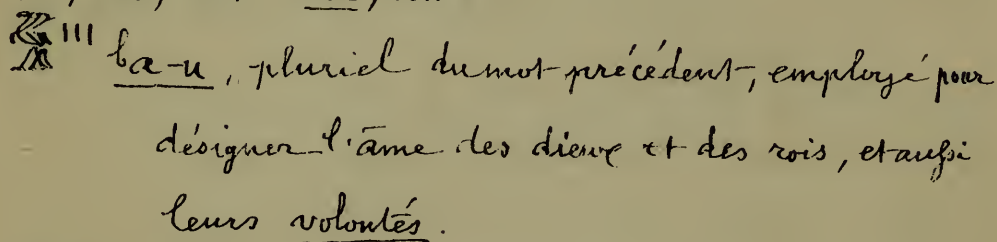 𓅡 III ba-u, pluriel du mot précédent, employé pour
désigner l'âme des dieux et des rois, et aussi
leurs volontés.